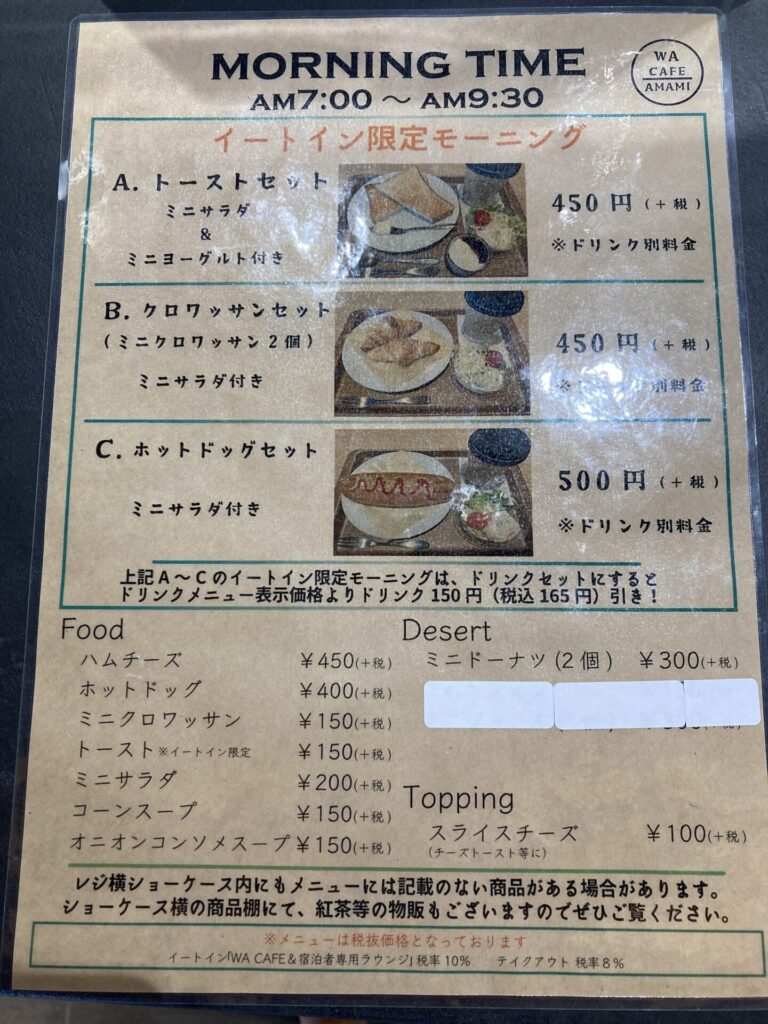 MORNING TIME
WA
CAFE
AMAMI
AM7:00 ～ AM9:30
イートイン限定モーニング
A. トーストセット
ミニサラダ
&
ミニヨーグルト付き
450円(+税)
※ドリンク別料金
B. クロワッサンセット
(ミニクロワッサン2個)
ミニサラダ付き
450円(+税)
※ドリンク別料金
C. ホットドッグセット
ミニサラダ付き
500円(+税)
※ドリンク別料金
上記A～Cのイートイン限定モーニングは、ドリンクセットにすると
ドリンクメニュー表示価格よりドリンク150円(税込165円)引き!
Food
ハムチーズ ¥450(+税)
ホットドッグ ¥400(+税)
ミニクロワッサン ¥150(+税)
トースト※イートイン限定 ¥150(+税)
ミニサラダ ¥200(+税)
コーンスープ ¥150(+税)
オニオンコンソメスープ ¥150(+税)
Desert
ミニドーナツ(2個) ¥300(+税)
Topping
スライスチーズ ¥100(+税)
(チーズトースト等に)
レジ横ショーケース内にもメニューには記載のない商品がある場合があります。
ショーケース横の商品棚にて、紅茶等の物販もございますのでぜひご覧ください。
※メニューは税抜価格となっております
イートイン「WA CAFE&宿泊者専用ラウンジ」税率10% テイクアウト 税率8%